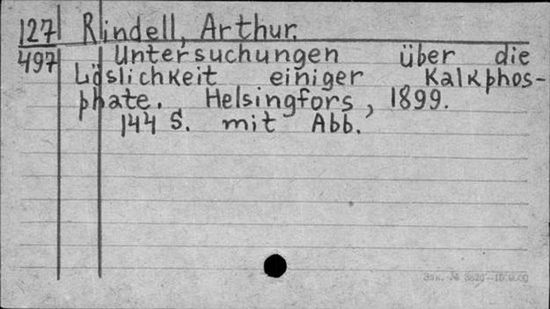 127 Rindell, Arthur.
497 Untersuchungen über die
Löslichkeit einiger Kalkphos-
phate. Helsingfors, 1899.
144 S. mit Abb.